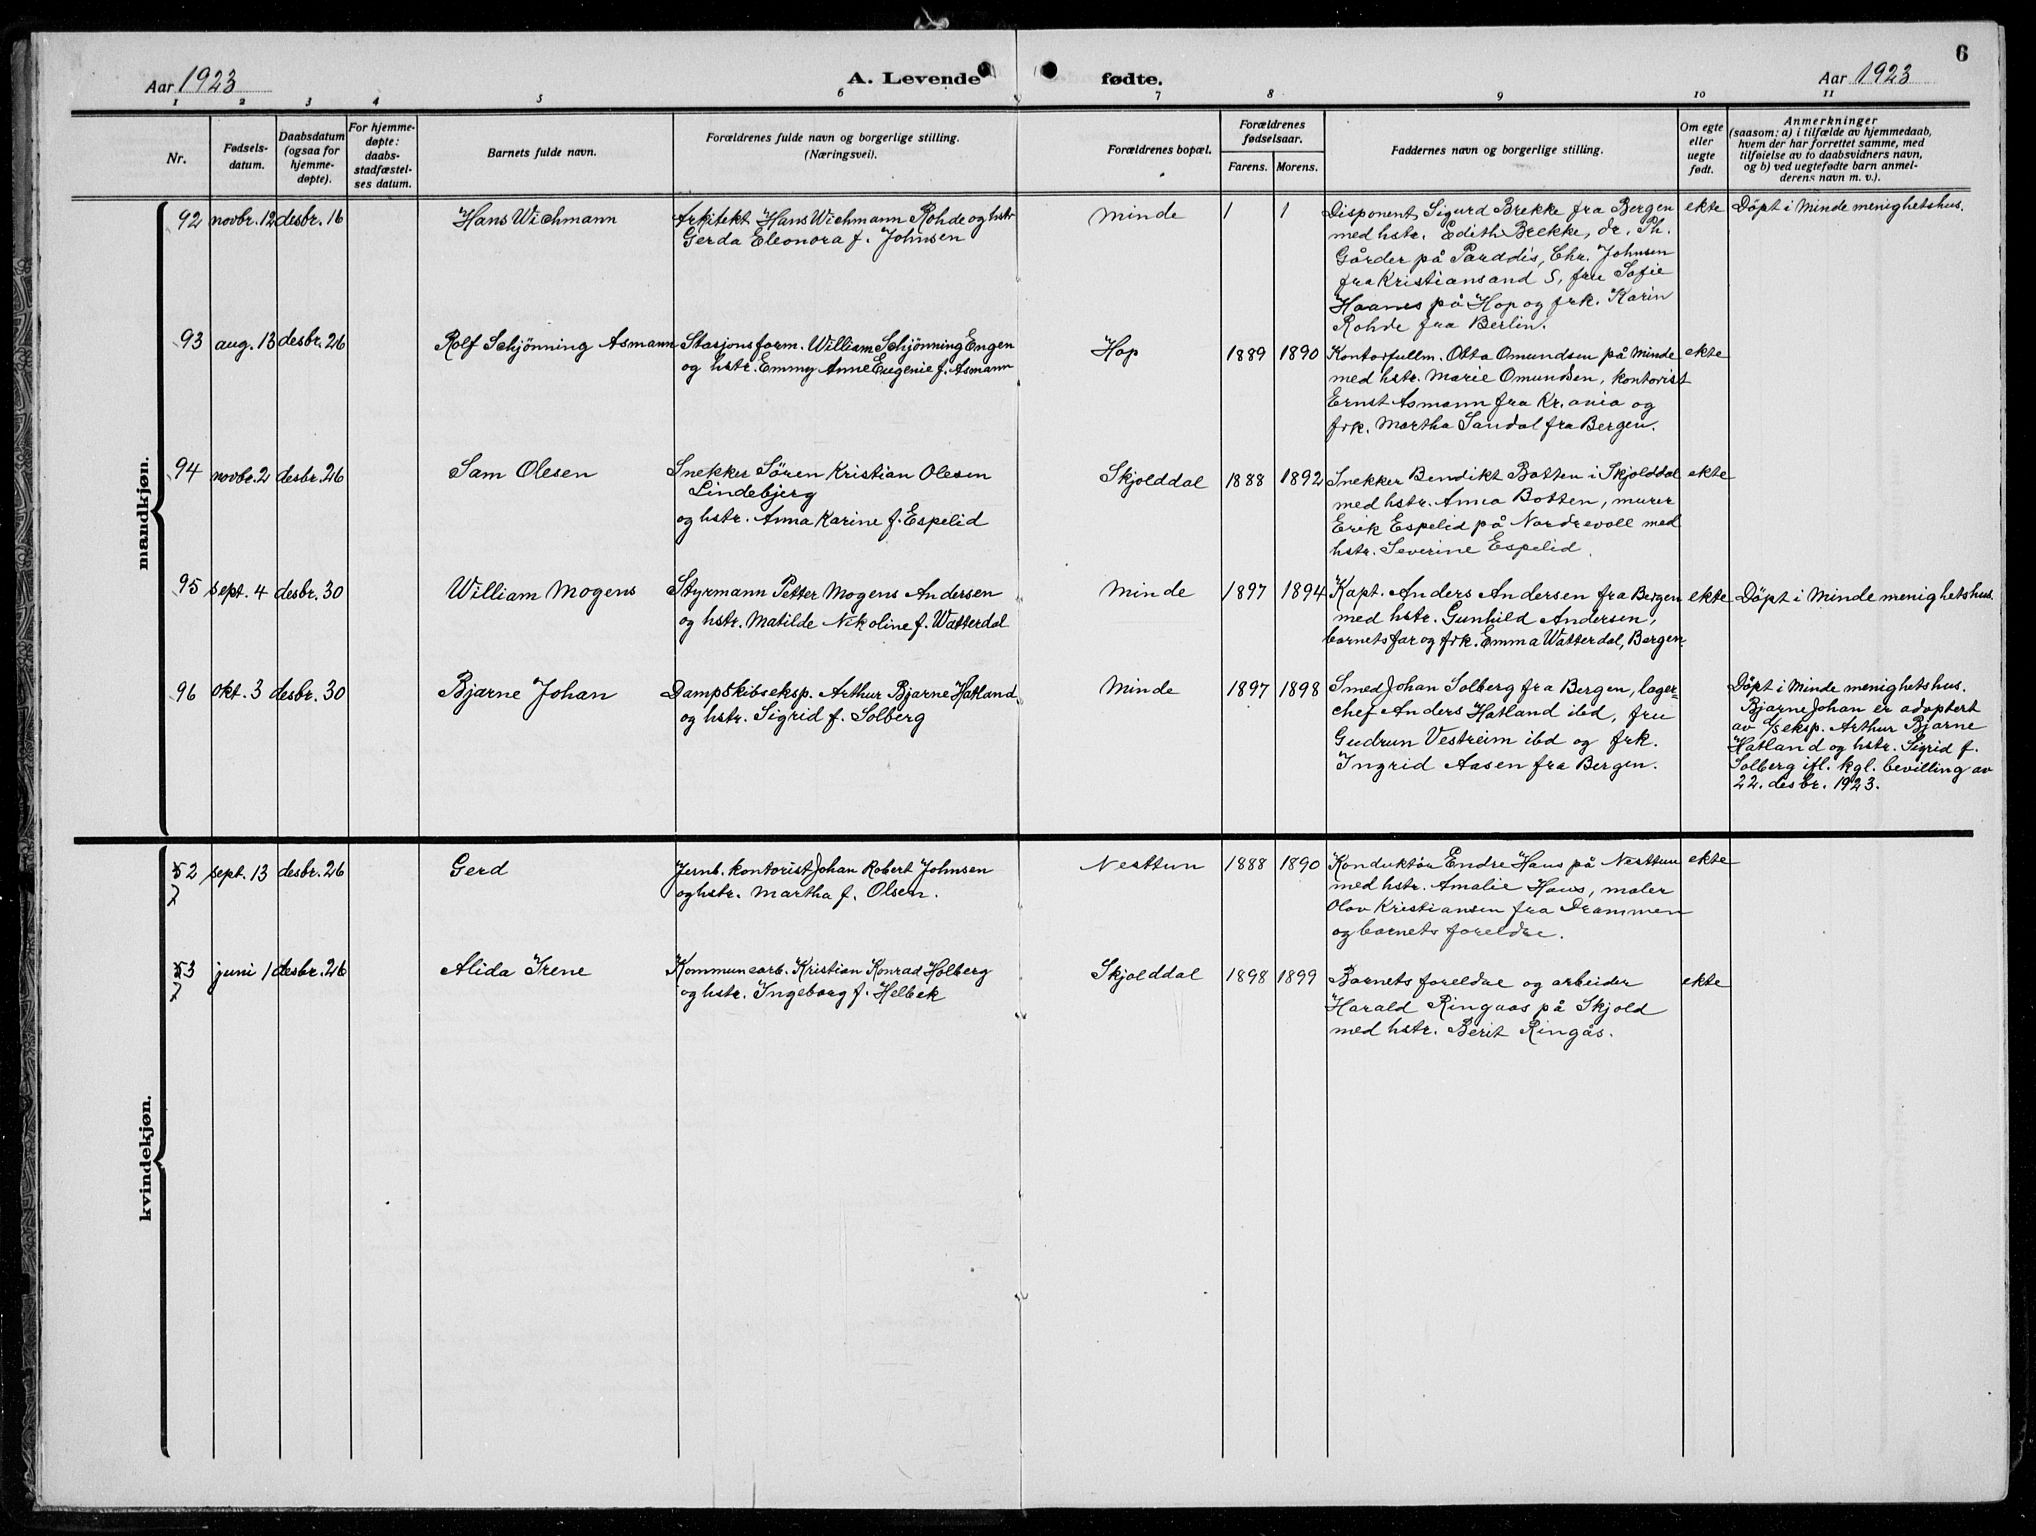 6
Aar 1923
A. Levende fødte.
Aar 1923
1 2 3 4 5 6 7 8 9 10 11
Nr.
Fødsels-
datum.
Daabsdatum
(ogsaa for
hjemme-
døpte).
For hjemme-
døpte:
daabs-
stadfæstel-
ses datum.
Barnets fulde navn.
Forældrenes fulde navn og borgerlige stilling.
(Næringsvei).
Forældrenes bopæl.
Forældrenes
fødselsaar.
Farens. Morens.
Faddernes navn og borgerlige stilling.
Om egte
eller
uegte
født.
Anmerkninger
(saasom: a) i tilfælde av hjemmedaab,
hvem der har forrettet samme, med
tilføielse av to daabsvidners navn,
og b) ved uegtefødte barn anmel-
derens navn m. v.).
mandkjøn.
92 novbr. 12 desbr. 16
Hans Wichmann
Arkitekt Hans Wichmann Rohde og hstr
Gerda Eleonora f. Johnsen
Minde
1 1
Disponent Sigurd Brekke fra Bergen
med hstr. Edith Brekke, dr. Ph.
Gårder på Parddis, Chr. Johnsen
fra Kristiansand S, fru Sofie
Haanes på Hop og frk. Karin
Rohde fra Berlin.
ekte
Döpt i Minde menighetshus.
93 aug. 13 desbr. 26
Rolf Schjönning Asmann
Stasjonsform. William Schjönning Engen
og hstr. Emmy Anne Eugenie f. Asmann
Hop
1889 1890
Kontorfullm. Otto Omundsen på Minde
med hstr. Marie Omundsen, kontorist
Ernst Asmann fra Kr.ania og
frk. Martha Sandal fra Bergen.
ekte
94 novbr. 2 desbr. 26
Sam Olesen
Snekker Sören Kristian Olesen
Lindebjerg
og hstr. Anna Karine f. Espelid
Skjolddal
1888 1892
Snekker Bendikt Botten i Skjolddal
med hstr. Anna Botten, murer
Erik Espelid på Nordrevoll med
hstr. Severine Espelid.
ekte
95 sept. 4 desbr. 30
William Mogens
Styrmann Petter Mogens Andersen
og hstr. Matilde Nikoline f. Watterdal
Minde
1897 1894
Kapt. Anders Andersen fra Bergen
med hstr. Gunhild Andersen,
barnets far og frk. Emma Watterdal, Bergen.
ekte
Döpt i Minde menighetshus.
96 okt. 3 desbr. 30
Bjarne Johan
Dampskibseksp. Arthur Bjarne Hatland
og hstr. Sigrid f. Solberg
Minde
1897 1898
Smed Johan Solberg fra Bergen, lager-
chef Anders Hatland ibd, fru
Gudrun Vestreim ibd og frk.
Ingrid Aasen fra Bergen.
Döpt i Minde menighetshus.
Bjarne Johan er adoptert
av d/s eksp. Arthur Bjarne
Hatland og hstr. Sigrid f.
Solberg ifl. kgl. bevilling av
22. desbr. 1923.
kvindekjøn.
52 sept. 13 desbr. 26
7
Gerd
Jernb. kontorist Johan Robert Johnsen
og hstr. Martha f. Olsen.
Nesttun
1888 1890
Konduktör Endre Haus på Nesttun
med hstr. Amalie Haus, maler
Olav Kristiansen fra Drammen
og barnets foreldre.
ekte
53 juni 1 desbr. 26
7
Alida Irene
Kommunearb. Kristian Konrad Holberg
og hstr. Ingeborg f. Helbek
Skjolddal
1898 1899
Barnets foreldre og arbeider
Harald Ringaas på Skjold
med hstr. Berit Ringås.
ekte